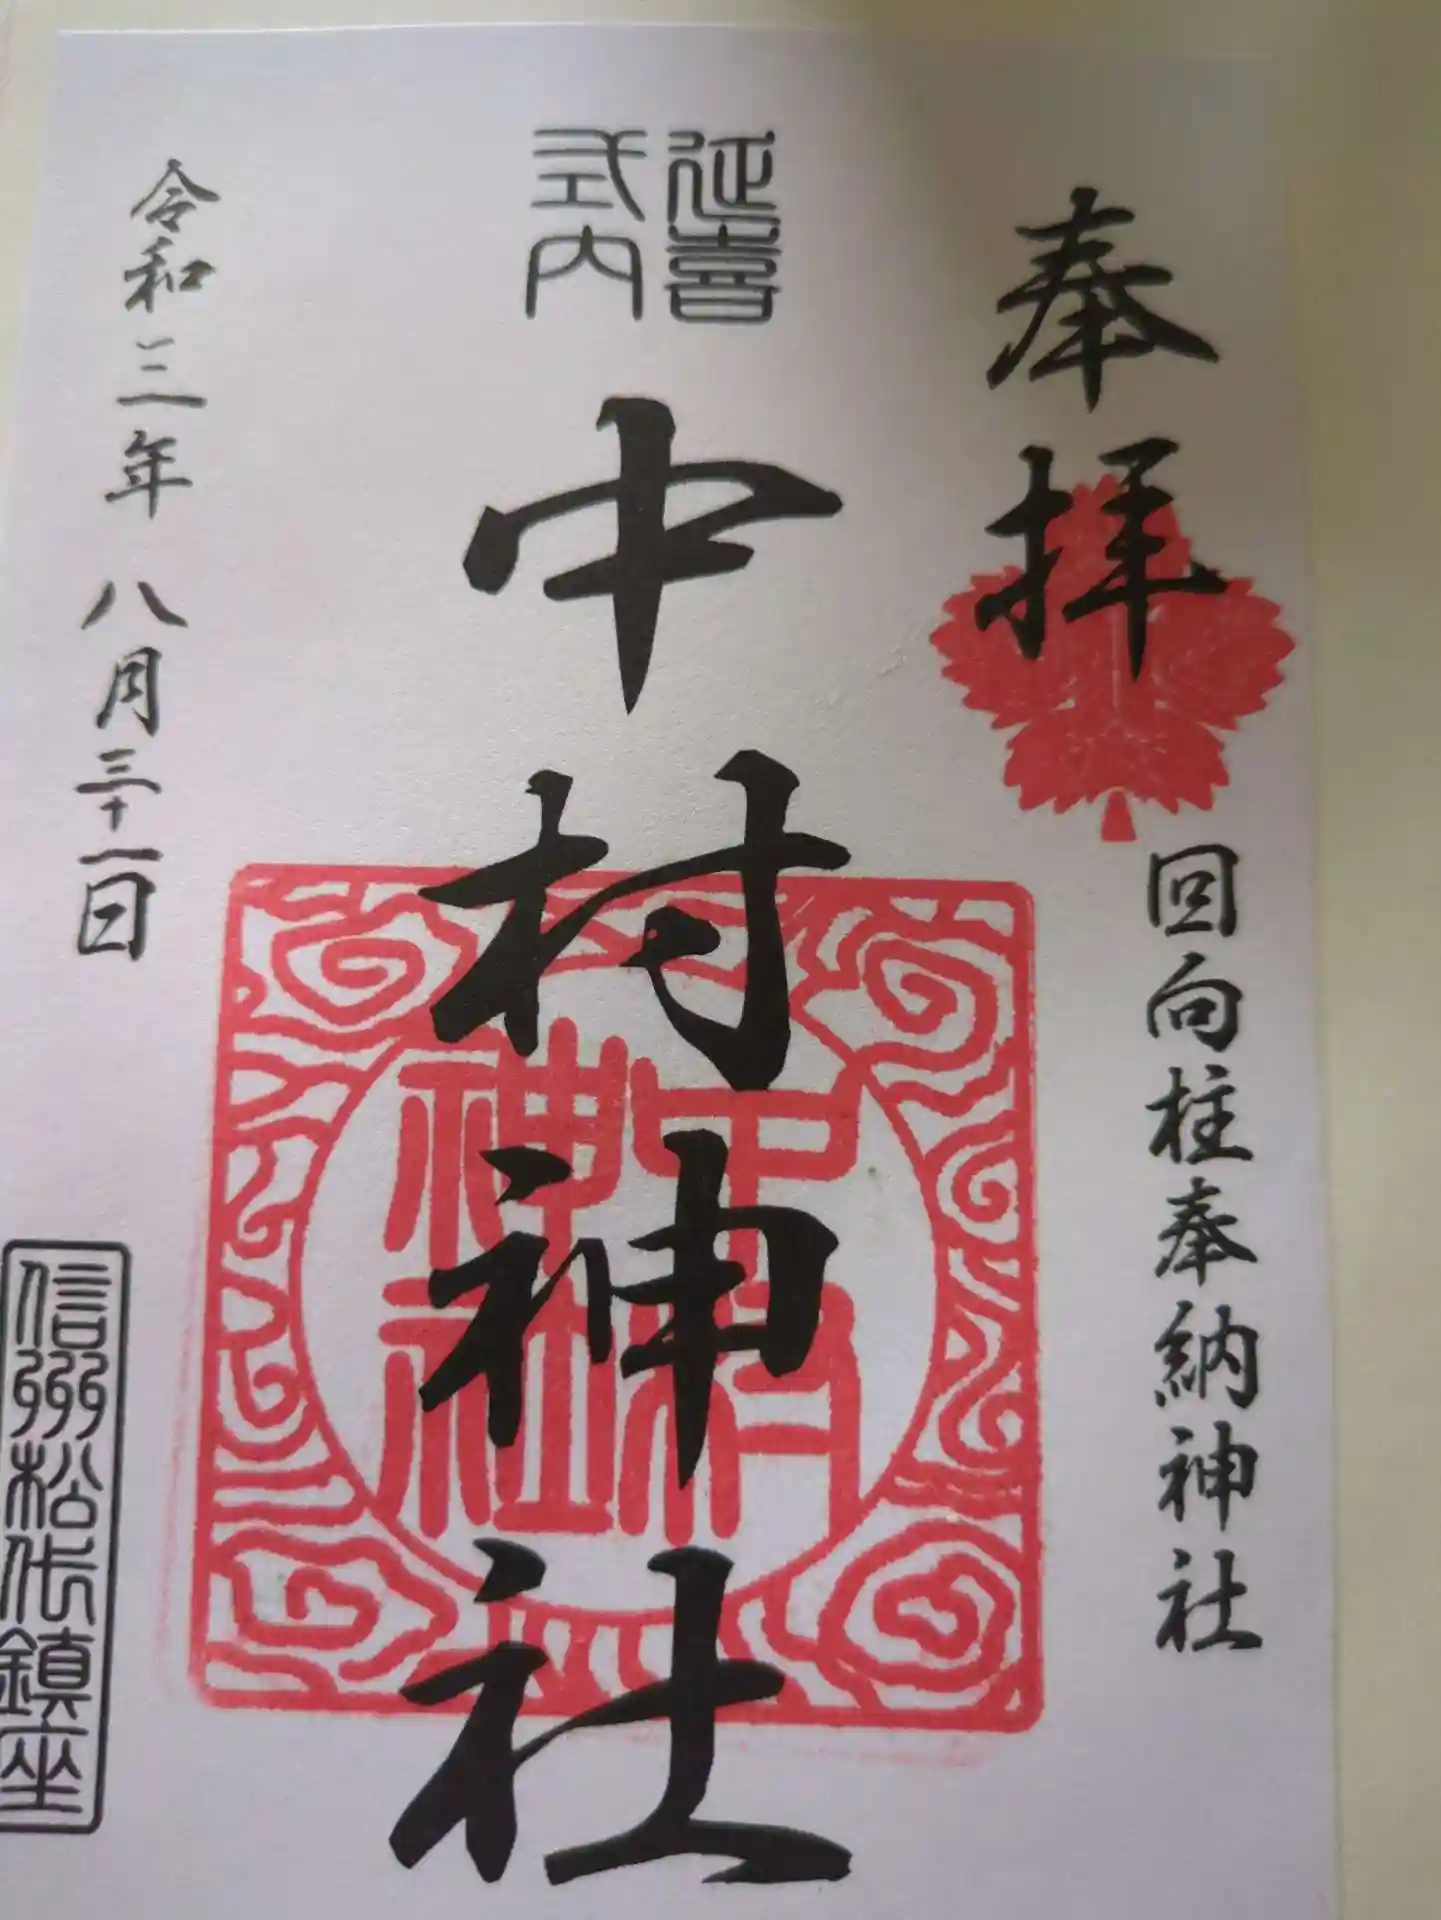 奉拝
回向柱奉納神社
延喜
式内
中村神社
中村
神社
令和三年 八月三十一日
信州松代鎮座